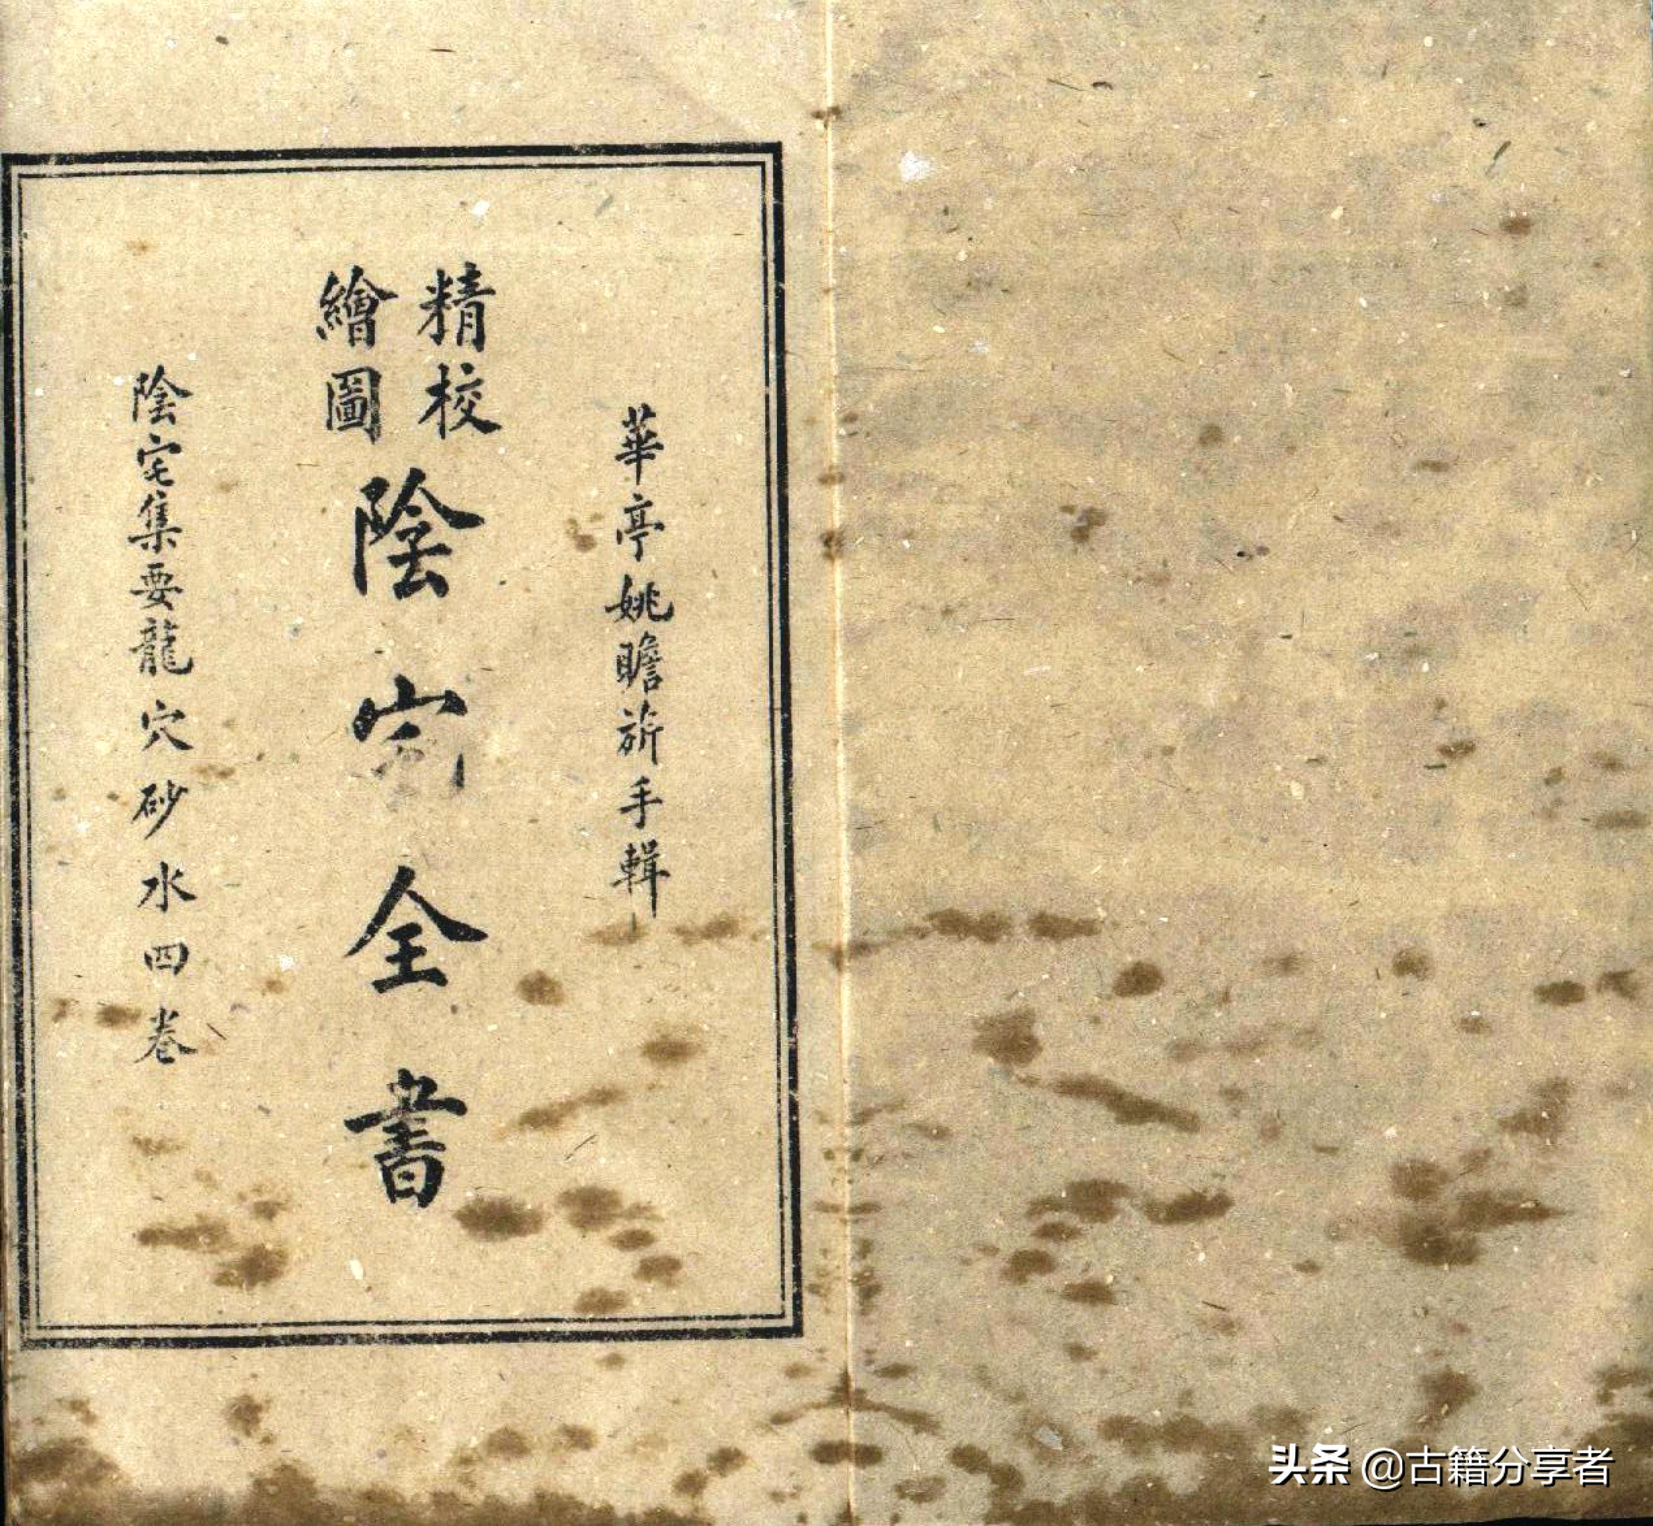 華亭姚瞻旂手輯
精校
繪圖
陰宅全書
陰宅集要龍穴砂水四卷
头条 @古籍分享者